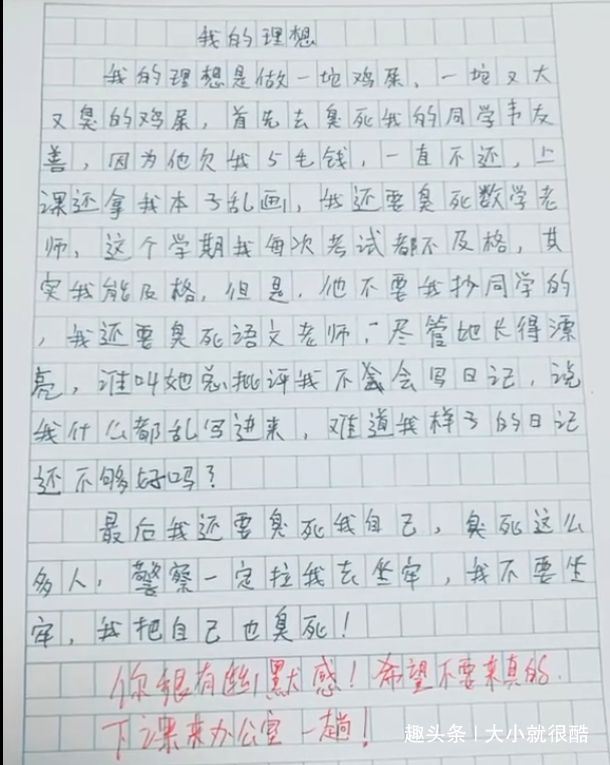 我的理想
我的理想是做一坨鸡屎,一坨又大
又臭的鸡屎,首先去臭死我的同学韦友
善,因为他欠我5毛钱,一直不还,上
课还拿我本子乱画,我还要臭死数学老
师,这个学期我每次考试都不及格,其
实我能及格,但是,他不要我抄同学的
,我还要臭死语文老师,尽管她长得漂
亮,谁叫她总批评我不会写日记,说
我什么都乱写进来,难道我样子的日记
还不够好吗?
最后我还要臭死我自己,臭死这么
多人,警察一定拉我去坐牢,我不要坐
牢,我把自己也臭死!
你很有幽默感!希望不要来真的.
下课来办公室一趟!
趣头条|大小就很酷